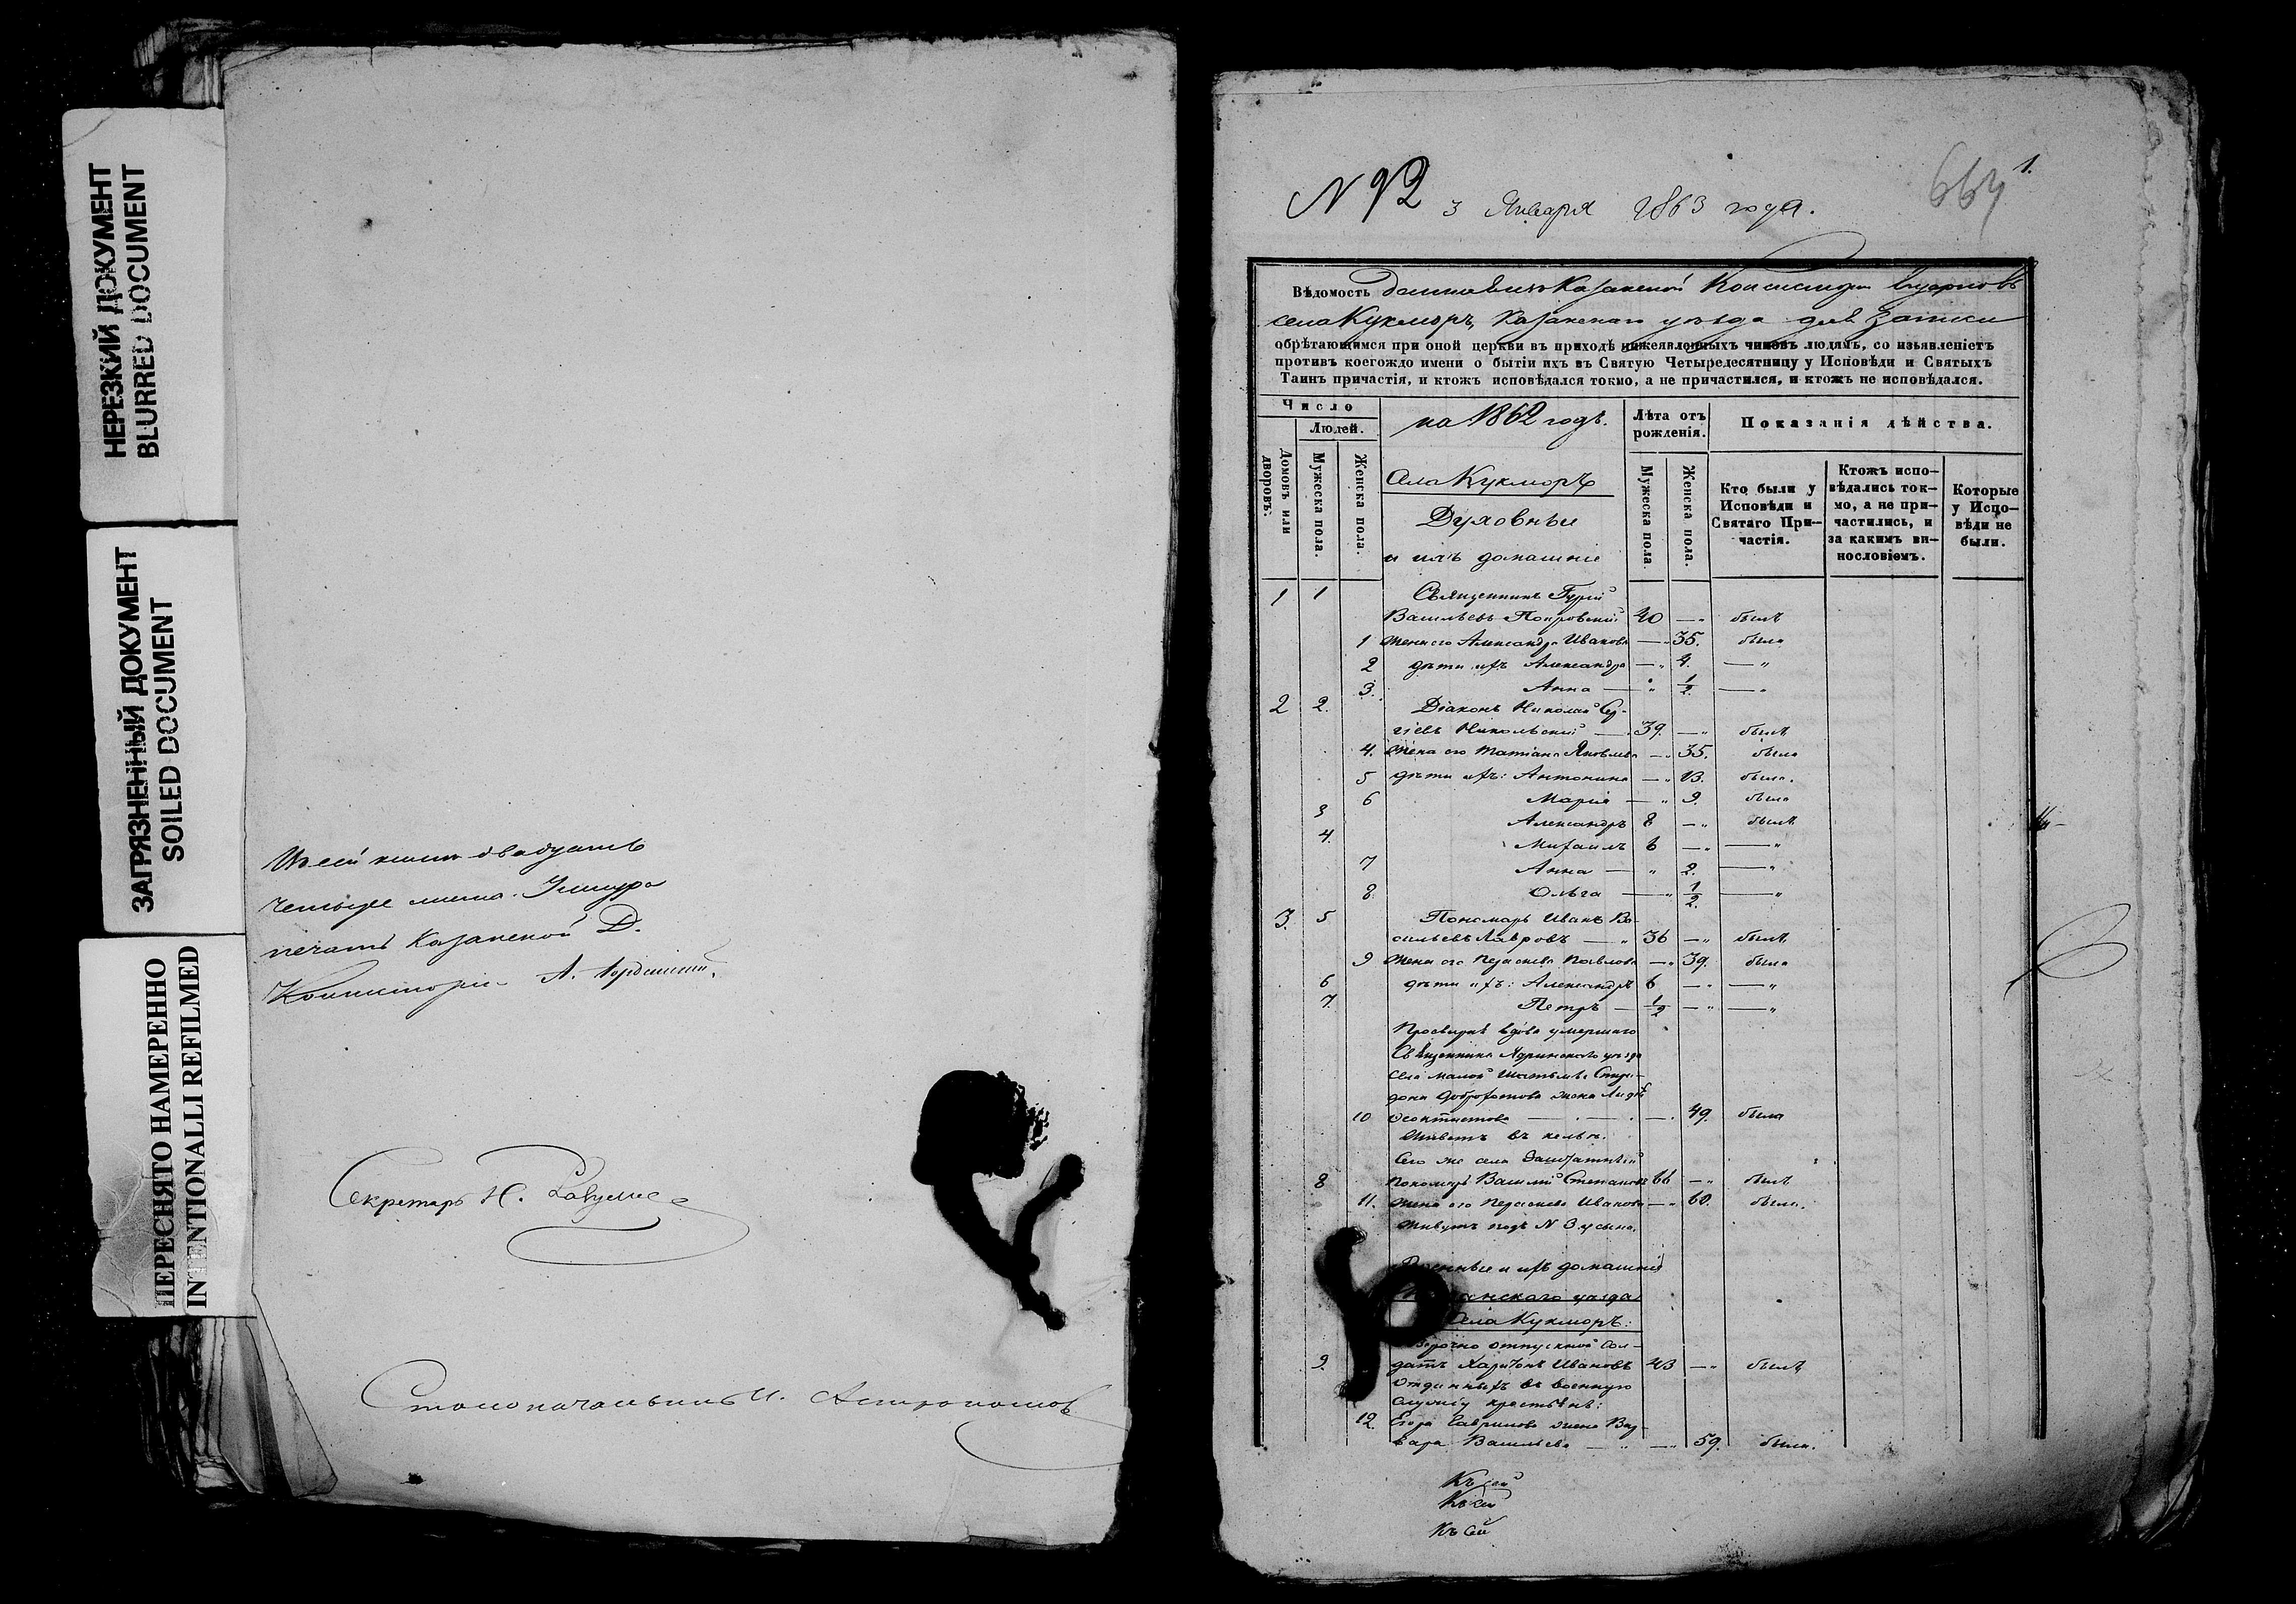 НЕРЕЗКИЙ ДОКУМЕНТ
BLURRED DOCUMENT
ЗАГРЯЗНЕННЫЙ ДОКУМЕНТ
SOILED DOCUMENT
ПЕРЕСНЯТО НАМЕРЕННО
INTENTIONALLI REFILMED
двадцать
четыре листа.
печать Казанской Д.
Консисторіи А.
Секретарь Н.
Столоначальникъ И.
N 92 3 Января 1863 года.
664 1.
Вѣдомость Казанской Консисторіи
села Кукморъ, Казанскаго уѣзда для записи
обрѣтающимся при оной церкви въ приходѣ нижеявленныхъ чиновъ людямъ, со изъявленіетъ
противъ коегождо имени о бытіи ихъ въ Святую Четыредесятницу у Исповѣди и Святыхъ
Таинъ причастія, и ктожъ исповѣдался токмо, а не причастился, и ктожъ не исповѣдался.
Число
Людей.
Домовъ или дворовъ.
Мужеска пола.
Женска пола.
на 1862 годъ.
Села Кукморъ
Духовные
и ихъ домашніе
Лѣта отъ рожденія.
Мужеска пола
Женска пола.
Показанія дѣйства.
Кто были у Исповѣди и Святаго При-частія.
Ктожъ испо-вѣдались ток-мо, а не при-частились, и за какимъ ви-нословіемъ.
Которые у Испо-вѣди не были.
1 1 Священникъ Гурій
Васильевъ Покровскій 40 — " былъ
1 Жена его Александра Иванова — " 35. была
2 дѣти ихъ Александра — " 4. — "
3. Анна — " 1/2 — "
2 2. Діаконъ Николай Сер-
гіевъ Никольскій — 39. — " былъ
4. Жена его Татіана Яковлева — " 35. была
5 дѣти ихъ: Антонина — " 13. была.
6 Марія — " 9. была
3 Александръ 8 — " былъ
4. Михаилъ 6 — " — "
7 Анна — " 2. — "
8. Ольга — " 1/2. — "
3. 5 Пономарь Иванъ Ва-
сильевъ Лавровъ — " 36 — " былъ
9 Жена его Параскева Павлова — " 39. была
6 дѣти ихъ: Александръ 6 — " — "
7. Петръ — 1/2 — " — "
Просвирня вдова умершаго
Священника Ядринскаго уѣзда
села Малой Шатьмы Спири-
дона жена
10 — — 49. была
Живетъ въ кельѣ.
Сего же села Заштатный
8 пономарь Василій Степановъ 66 — " былъ
11. Жена его Параскева Иванова — " 60. была.
Живутъ подъ N 3 у сына.
Военные и ихъ домашніе
Казанскаго уѣзда
Села Кукморъ:
отпускной Сол-
9. датъ Харитонъ Ивановъ 43 — " былъ
Отданныхъ въ военную
службу крестьянъ:
12. Егора Гаврилова жена Вар-
вара Васильева — " — " 59. была.
Къ сей
Къ сей
Къ сей